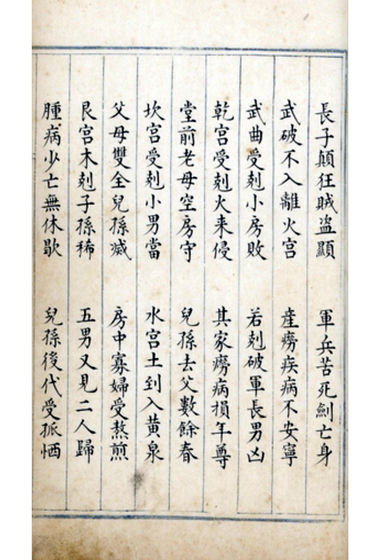 長子顛狂賊盜顯 軍兵苦死劍亡身
武破不入離火宮 產癆疾病不安寧
武曲受剋小房敗 若剋破軍長男凶
乾宮受剋火来侵 其家癆病損年尊
堂前老母空房守 兒孫去父數餘春
坎宮受剋小男當 水宮土到入黃泉
父母雙全兒孫滅 房中寡婦受熬煎
艮宮木剋子孫稀 五男又見二人歸
腫病少亡無休歇 兒孫後代受孤恓